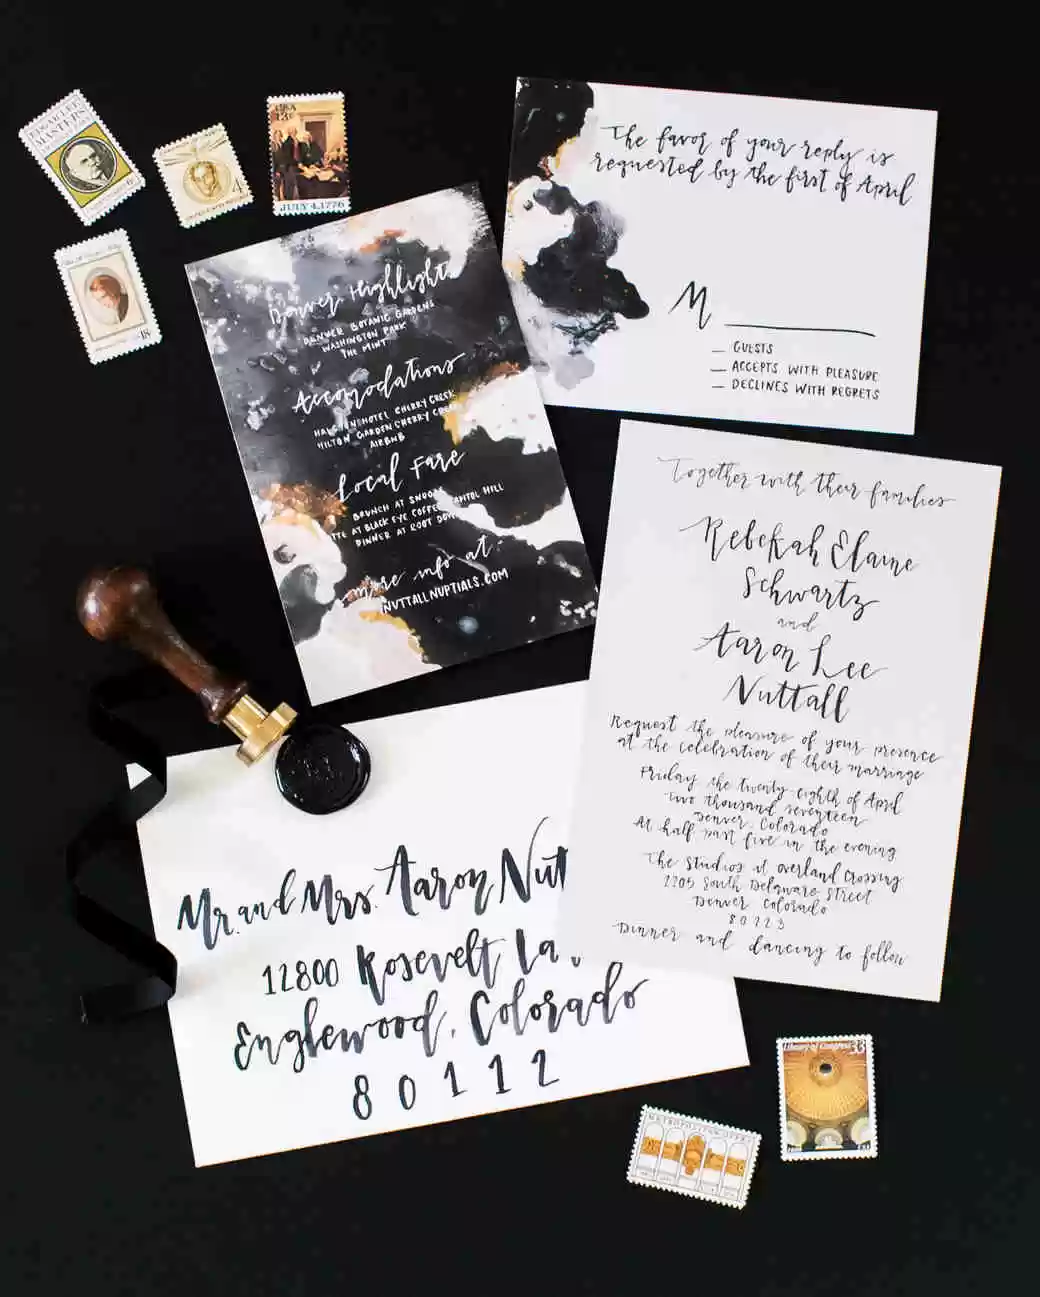 EDGAR LEE
MASTERS
6¢
4¢
USA
13c
JULY 4, 1776
18c
The favor of your reply is
requested by the first of April
M
GUESTS
ACCEPTS WITH PLEASURE
DECLINES WITH REGRETS
Denver Highlights
DENVER BOTANIC GARDENS
WASHINGTON PARK
THE MINT
Accomodations
HOTEL CHERRY CREEK
HILTON GARDEN CHERRY CREEK
AIRBNB
Local Fare
BRUNCH AT SNOOZE
AT BLACK EYE COFFEE CAPITOL HILL
DINNER AT ROOT DOWN
more info at:
NUTTALLNUPTIALS.COM
Together with their families
Rebekah Elaine
Schwartz
and
Aaron Lee
Nuttall
Request the pleasure of your presence
at the celebration of their marriage
Friday the twenty-eighth of April
Two thousand seventeen
Denver, Colorado
At half past five in the evening
The Studios at Overland Crossing
2205 South Delaware Street
Denver Colorado
80223
Dinner and dancing to follow
Mr. and Mrs. Aaron Nut
12800 Rosevelt La
Englewood, Colorado
80112
Library of Congress
33
METROPOLITAN OPERA